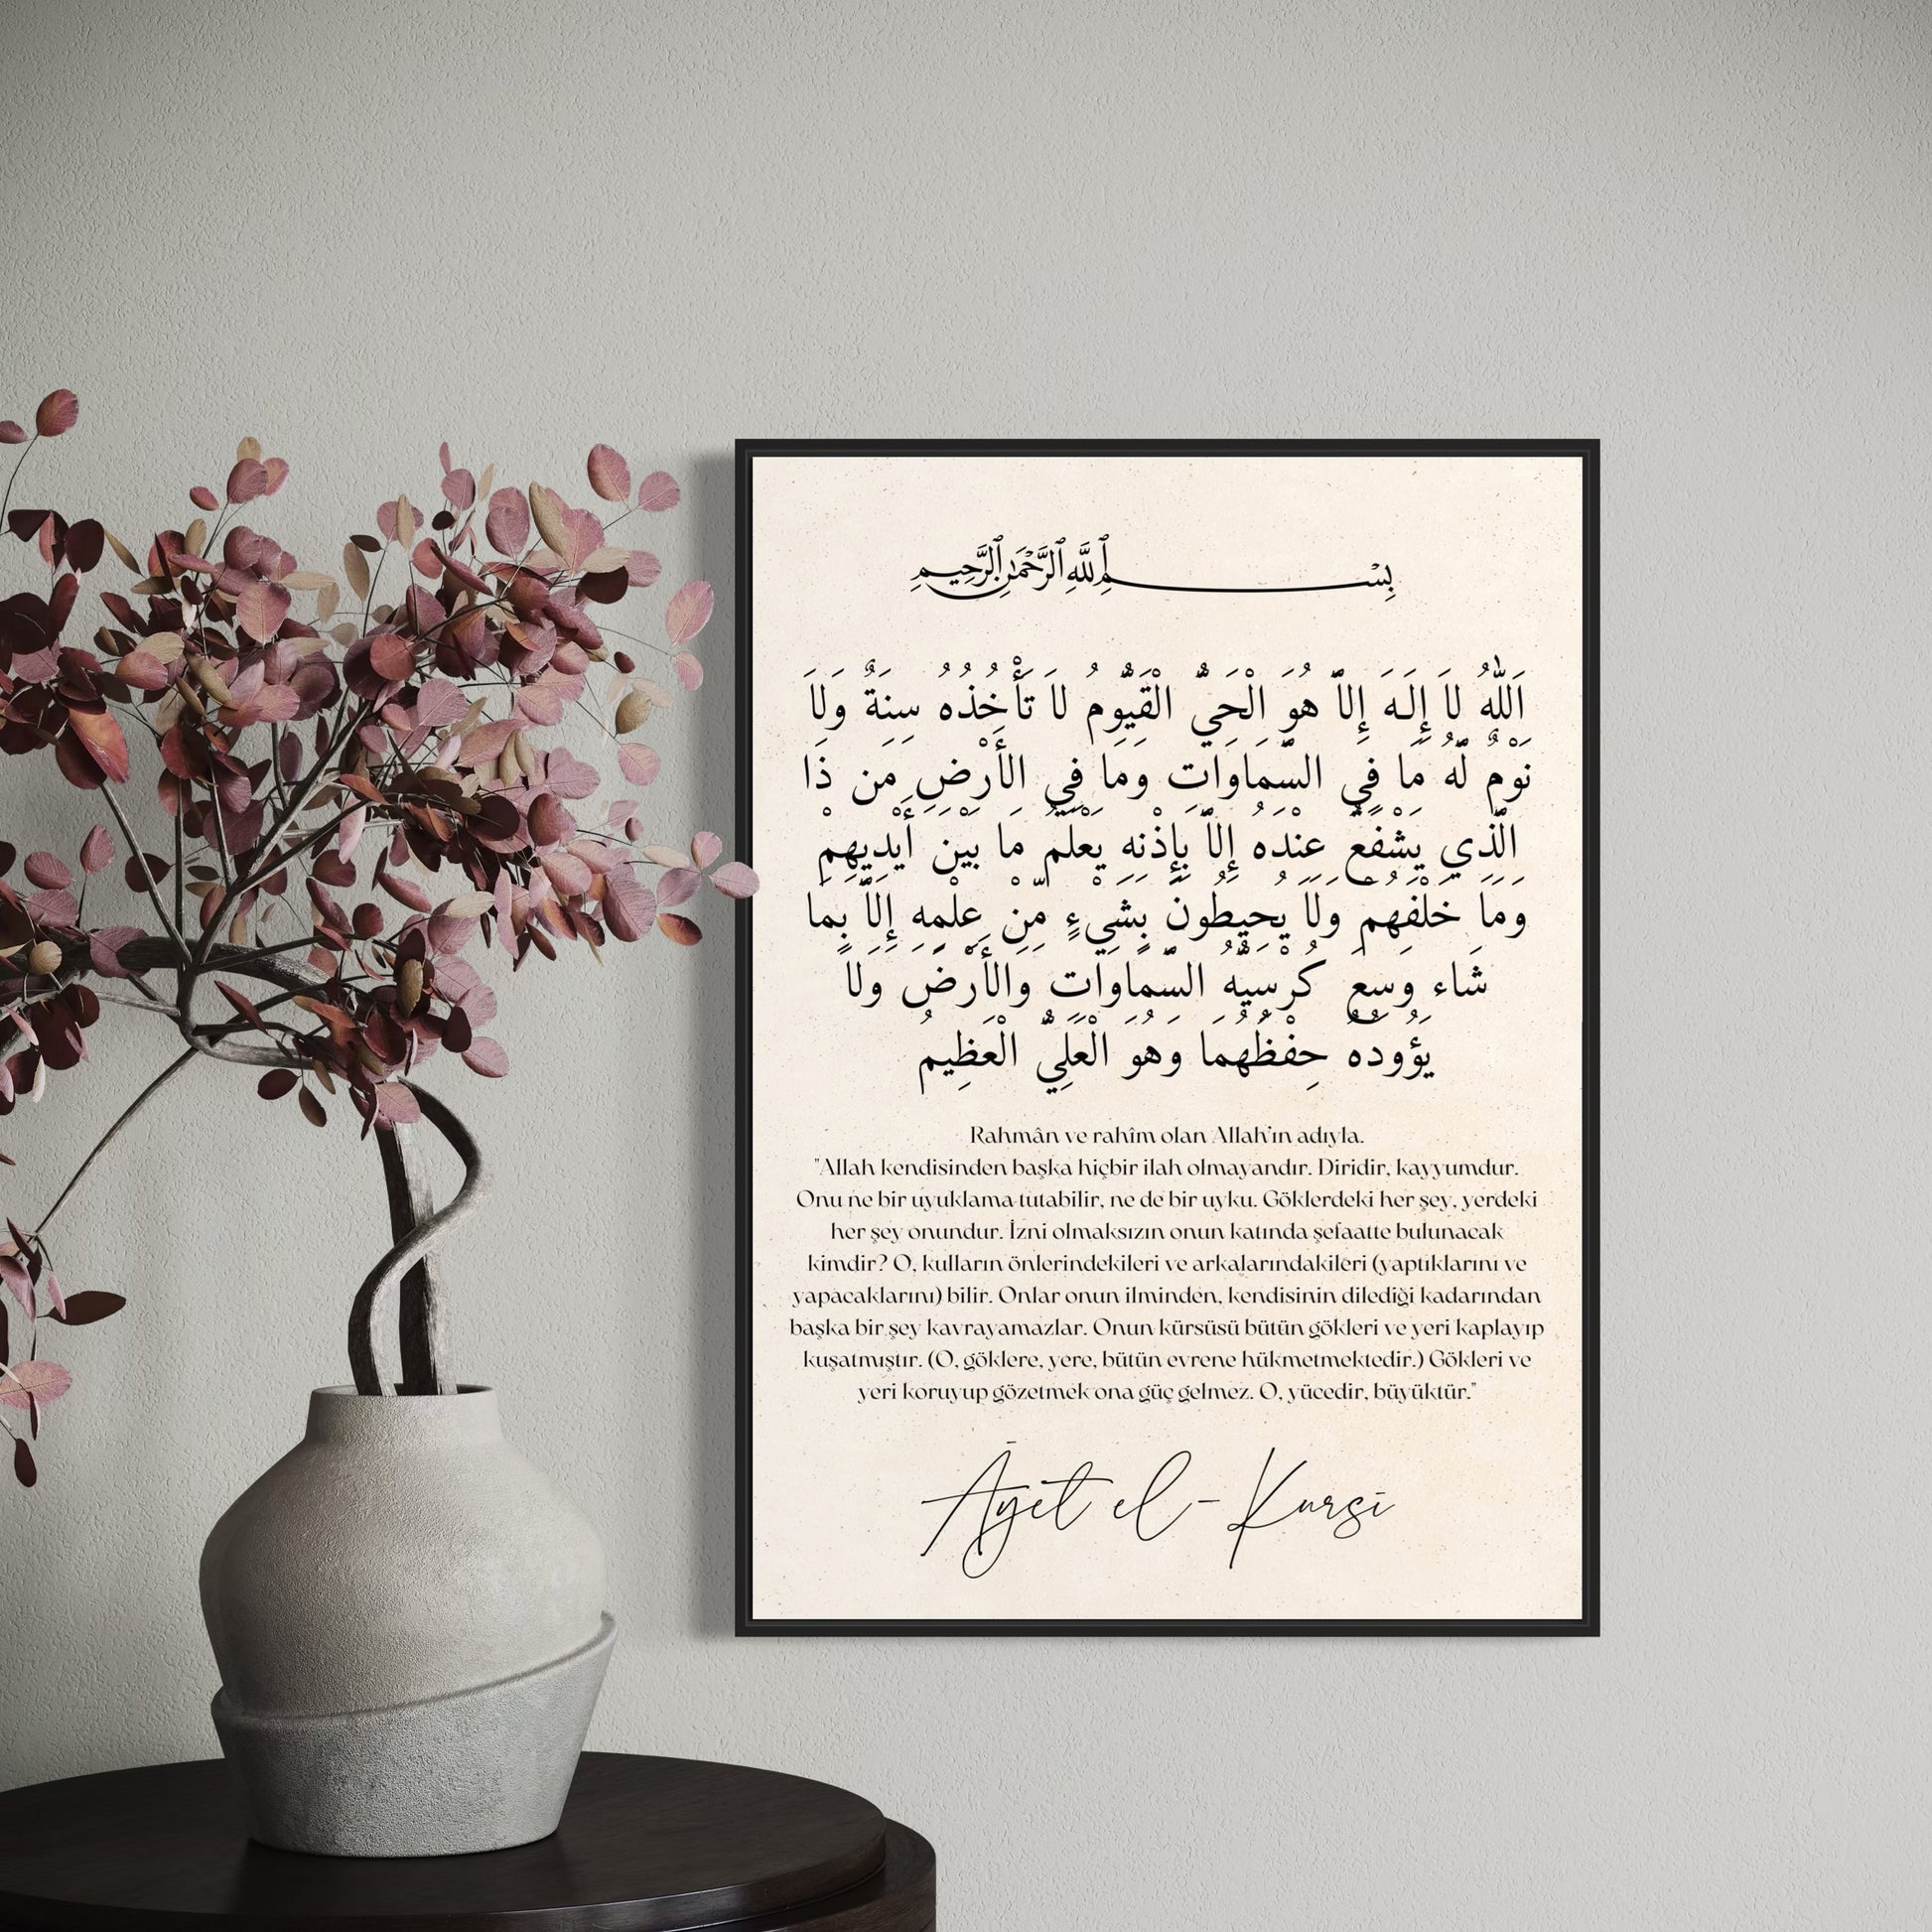 بِسْمِ ٱللَّهِ ٱلرَّحْمَٰنِ ٱلرَّحِيمِ
اَللّٰهُ لاَ إِلَـهَ إِلاَّ هُوَ الْحَيُّ الْقَيُّومُ لاَ تَأْخُذُهُ سِنَةٌ وَلاَ
نَوْمٌ لَّهُ مَا فِي السَّمَاوَاتِ وَمَا فِي الأَرْضِ مَن ذَا
الَّذِي يَشْفَعُ عِنْدَهُ إِلاَّ بِإِذْنِهِ يَعْلَمُ مَا بَيْنَ أَيْدِيهِمْ
وَمَا خَلْفَهُمْ وَلاَ يُحِيطُونَ بِشَيْءٍ مِّنْ عِلْمِهِ إِلاَّ بِمَا
شَاء وَسِعَ كُرْسِيُّهُ السَّمَاوَاتِ وَالأَرْضَ وَلاَ
يَؤُودُهُ حِفْظُهُمَا وَهُوَ الْعَلِيُّ الْعَظِيمُ
Rahmân ve rahîm olan Allah'ın adıyla.
"Allah kendisinden başka hiçbir ilah olmayandır. Diridir, kayyumdur.
Onu ne bir uyuklama tutabilir, ne de bir uyku. Göklerdeki her şey, yerdeki
her şey onundur. İzni olmaksızın onun katında şefaatte bulunacak
kimdir? O, kulların önlerindekileri ve arkalarındakileri (yaptıklarını ve
yapacaklarını) bilir. Onlar onun ilminden, kendisinin dilediği kadarından
başka bir şey kavrayamazlar. Onun kürsüsü bütün gökleri ve yeri kaplayıp
kuşatmıştır. (O, göklere, yere, bütün evrene hükmetmektedir.) Gökleri ve
yeri koruyup gözetmek ona güç gelmez. O, yücedir, büyüktür."
Âyet el-Kursî